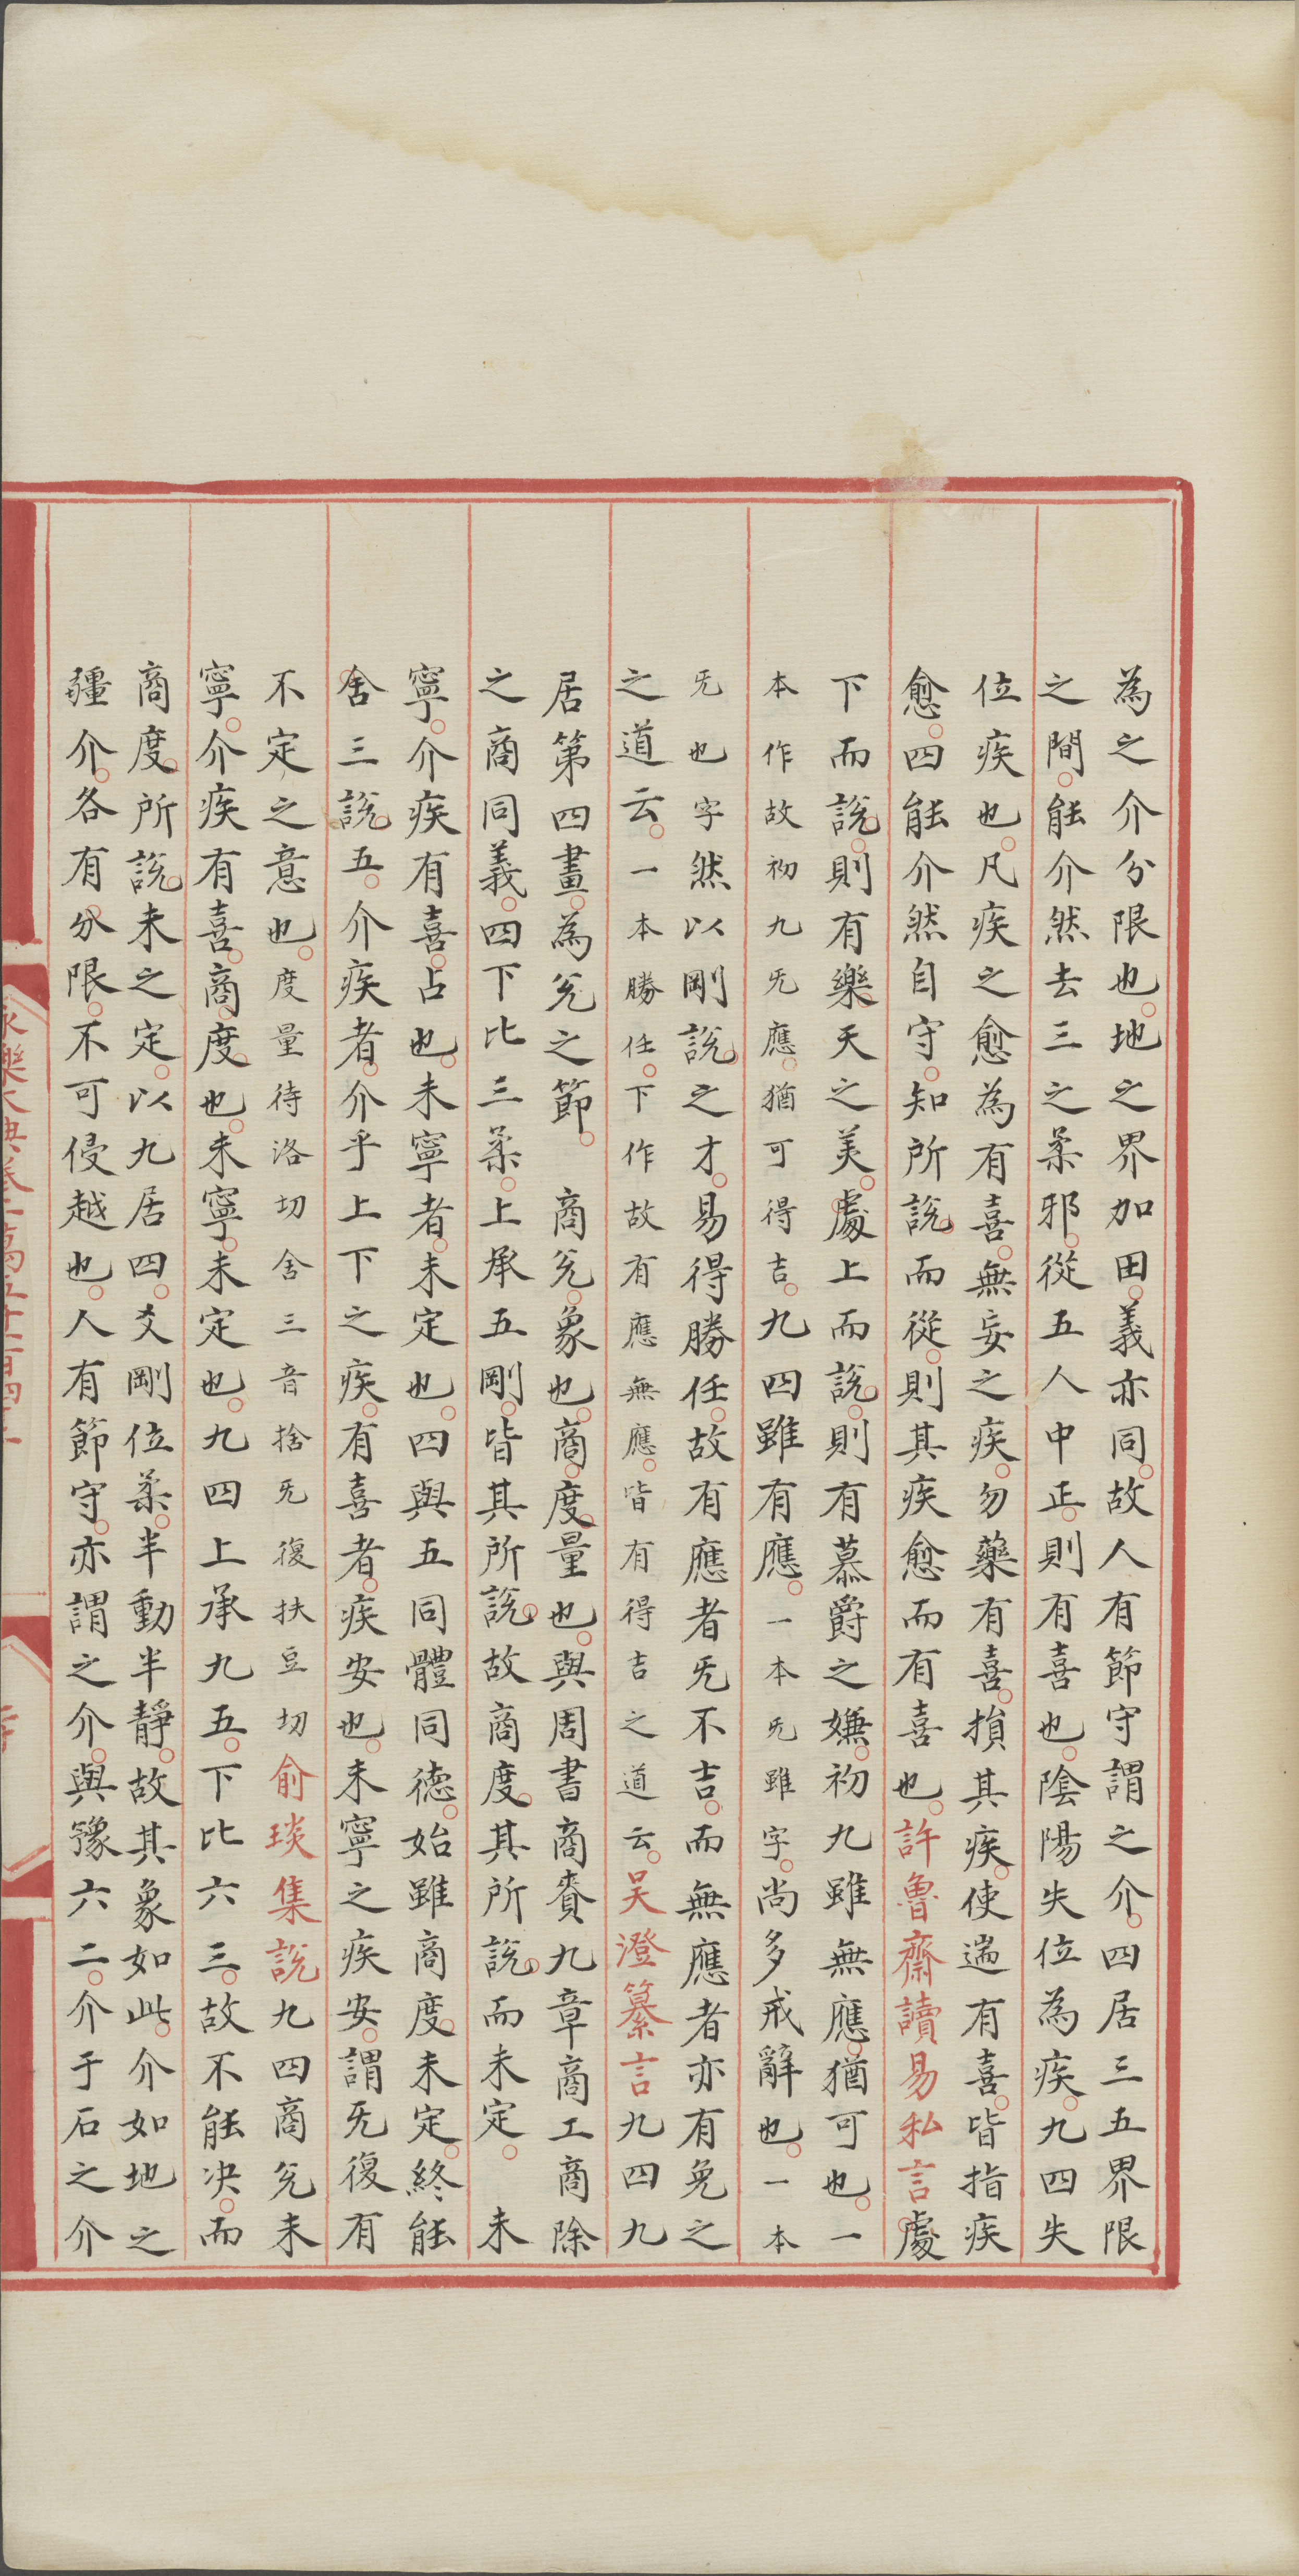 為之介分限也地之界加田義亦同故人有節守謂之介四居三五界限
之間能介然去三之柔邪從五人中正則有喜也陰陽失位為疾九四失
位疾也凡疾之愈為有喜無妄之疾勿藥有喜損其疾使遄有喜皆指疾
愈四能介然自守知所說而從則其疾愈而有喜也許魯齋讀易私言處
下而說則有樂天之美處上而說則有慕爵之嫌初九雖無應猶可也一
本作故初九旡應猶可得吉九四雖有應一本旡雖字尚多戒辭也一本
旡也字然以剛說之才易得勝任故有應者旡不吉而無應者亦有免之
之道云一本勝任下作故有應無應皆有得吉之道云吳澄纂言九四九
居第四畫為兌之節　商兌象也商度量也與周書商賚九章商工商除
之商同義四下比三柔上承五剛皆其所說故商度其所說而未定　未
寧介疾有喜占也未寧者未定也四與五同體同德始雖商度未定終能
舍三說五介疾者介乎上下之疾有喜者疾安也未寧之疾安謂旡復有
不定之意也度量待洛切舍三音捨旡復扶豆切俞琰集說九四商兌未
寧介疾有喜商度也未寧未定也九四上承九五下比六三故不能決而
商度所說未之定以九居四爻剛位柔半動半靜故其象如此介如地之
疆介各有分限不可侵越也人有節守亦謂之介與豫六二介于石之介
永樂大典卷一萬五千一百四十